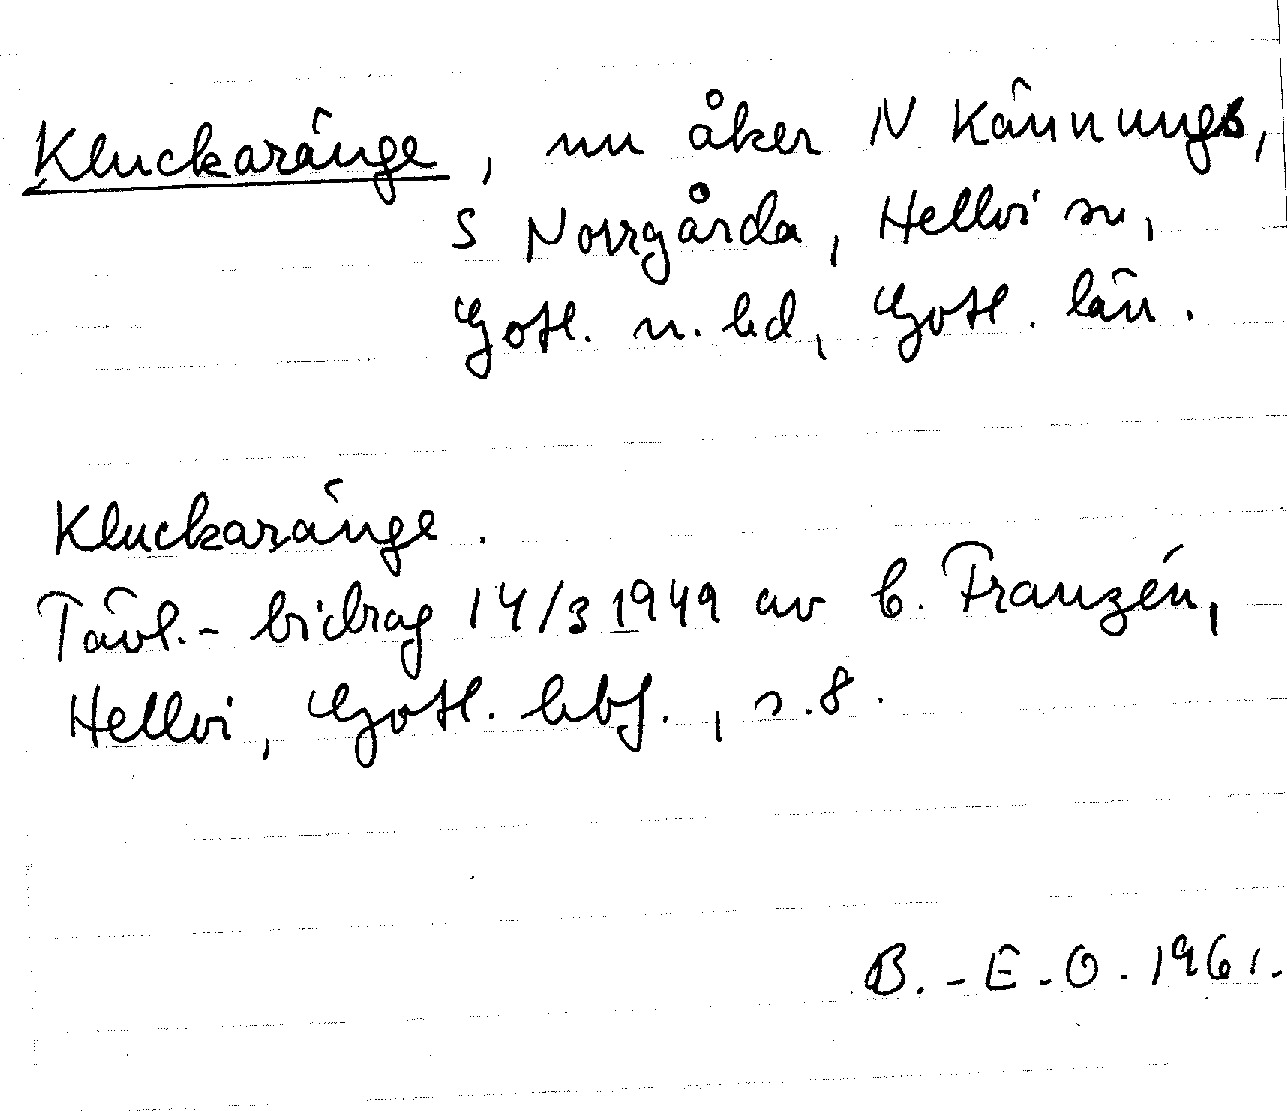 Kluckaränge, nu åker N Kännungs,
S Norrgårda, Hellvi sn,
Gotl. n. hd, Gotl. län.
Kluckaränge.
Tävl.-bidrag 14/3 1949 av C. Franzén,
Hellvi, Gotl. hbf., s. 8.
B.-E.O. 1961.